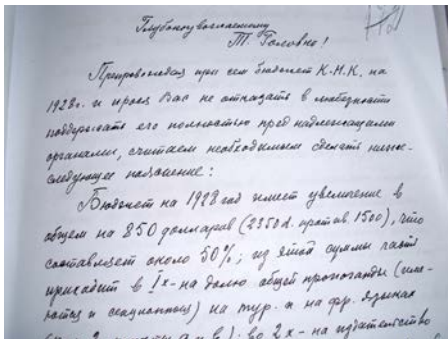 Глубокоуважаемому
Т. Головно!
Препровождая при сем бюджет К-Н.К. на
1928г. и прося Вас не отказать в любезности
поддержать его полностью пред надлежащими
органами, считаем необходимым сделать ниже-
следующее пояснение:
Бюджет на 1928 год имеет увеличение в
общем на 850 долларов (2350 д. против 1500), что
составляет около 50%; из этой суммы часть
приходит в Iх - на долю общей пропоганды
и секционных) на тур. и на фр. языках
во 2х - на издательство